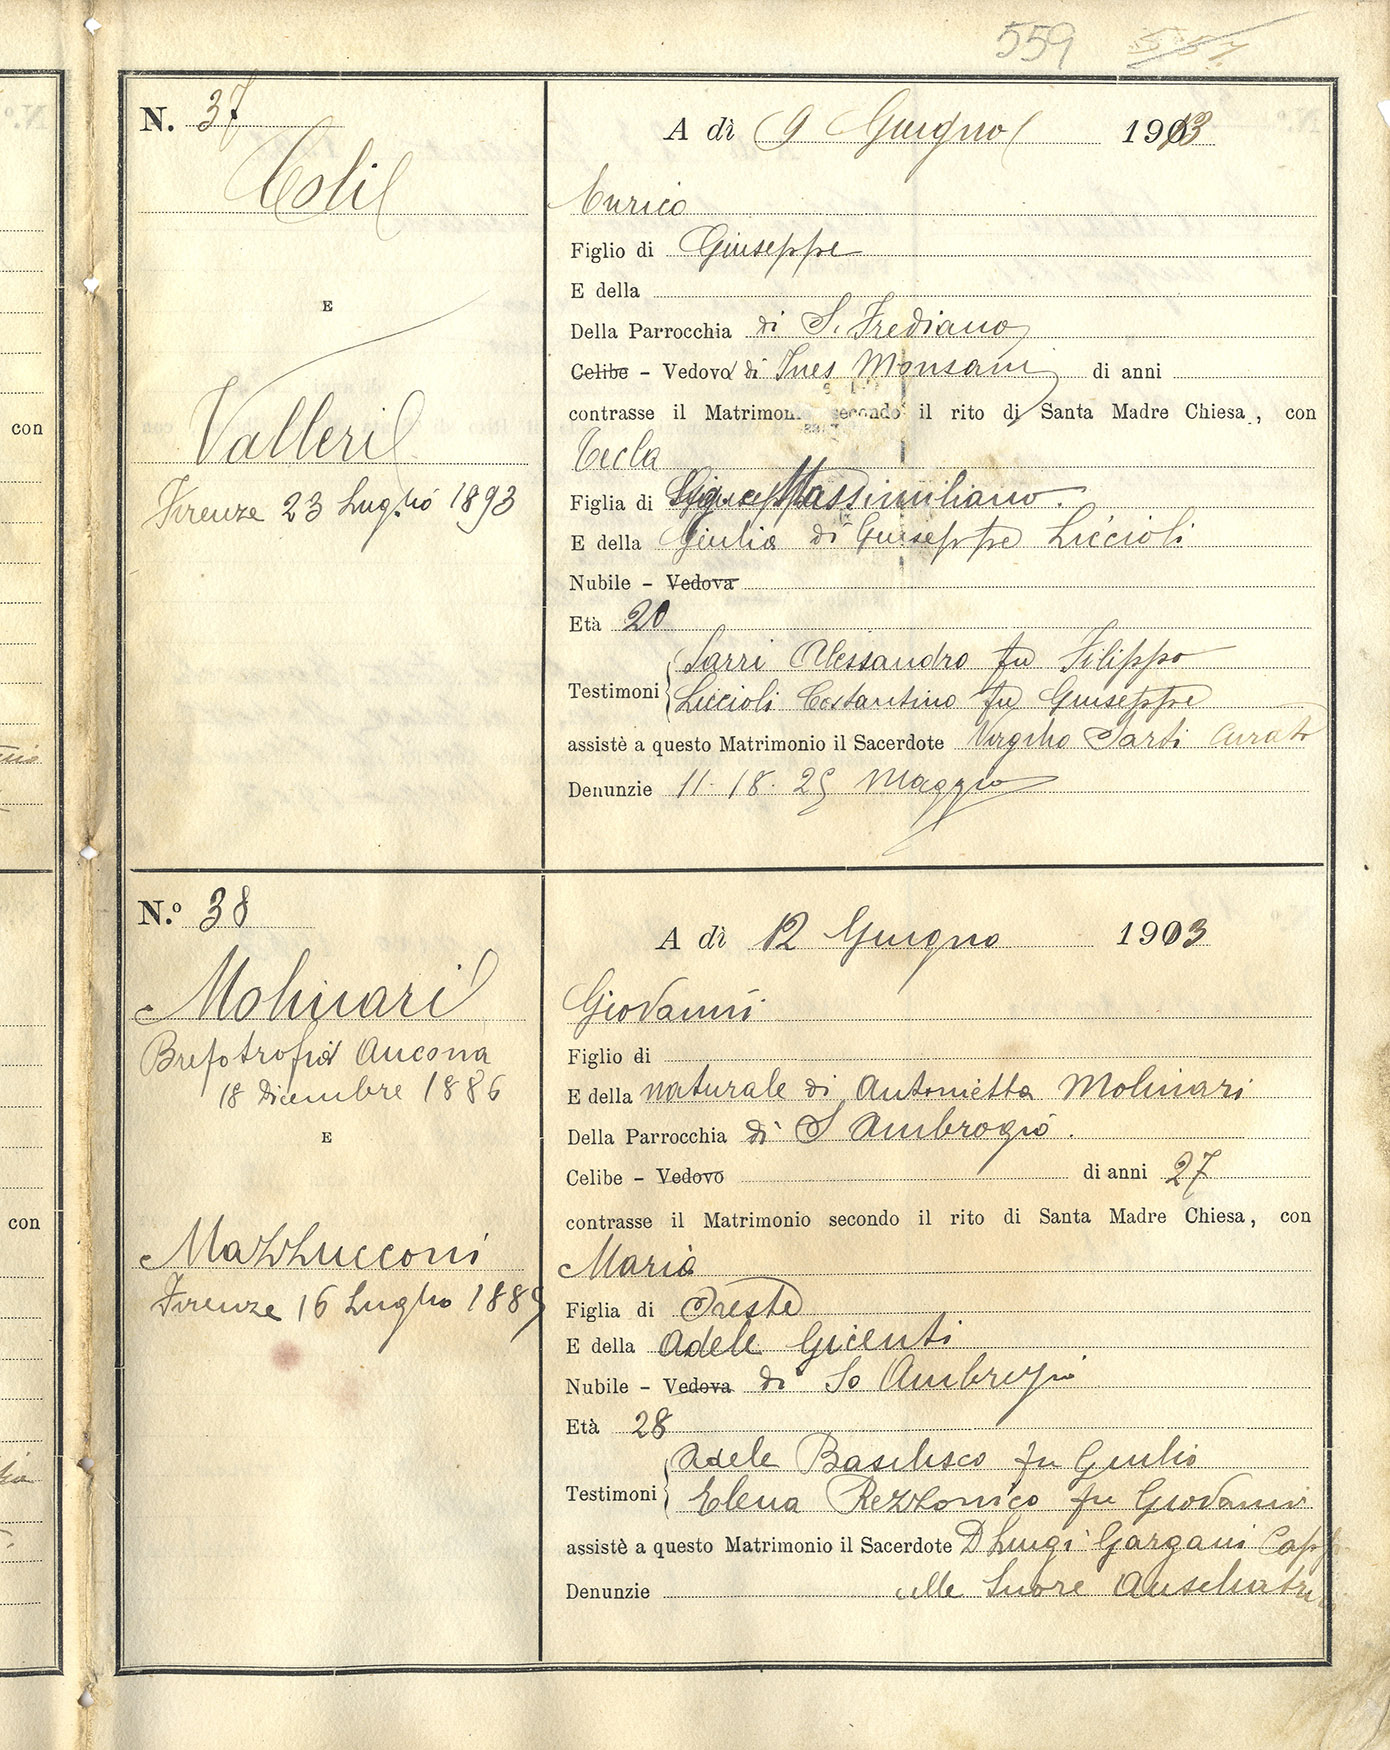 559 557
N. 37
Coli
E
Valleri
Firenze 23 Luglio 1893
A dì 9 Giugno 1913
Enrico
Figlio di Giuseppe
E della
Della Parrocchia di S. Frediano
Celibe - Vedovo di Ines Monsani di anni
contrasse il Matrimonio secondo il rito di Santa Madre Chiesa, con
Tecla
Figlia di Massimiliano.
E della Giulia di Giuseppe Liccioli
Nubile - Vedova
Età 20
Testimoni Sarri Alessandro fu Filippo
Liccioli Costantino fu Giuseppe
assistè a questo Matrimonio il Sacerdote Virgilio Sarti Curato
Denunzie 11. 18. 25 Maggio
con
N.º 38
Molinari
Brefotrofio Ancona
18 dicembre 1886
E
Mazzucconi
Firenze 16 Luglio 1885
A dì 12 Giugno 1913
Giovanni
Figlio di
E della naturale di Antonietta Molinari
Della Parrocchia di S Ambrogio.
Celibe - Vedovo di anni 27
contrasse il Matrimonio secondo il rito di Santa Madre Chiesa, con
Maria
Figlia di Oreste
E della Adele
Nubile - Vedova di So Ambrogio
Età 28
Testimoni Adele Basilisco fu Giulio
Elena Rezzonico fu Giovanni
assistè a questo Matrimonio il Sacerdote D Luigi Gargani Capp
Denunzie elle Suore
con